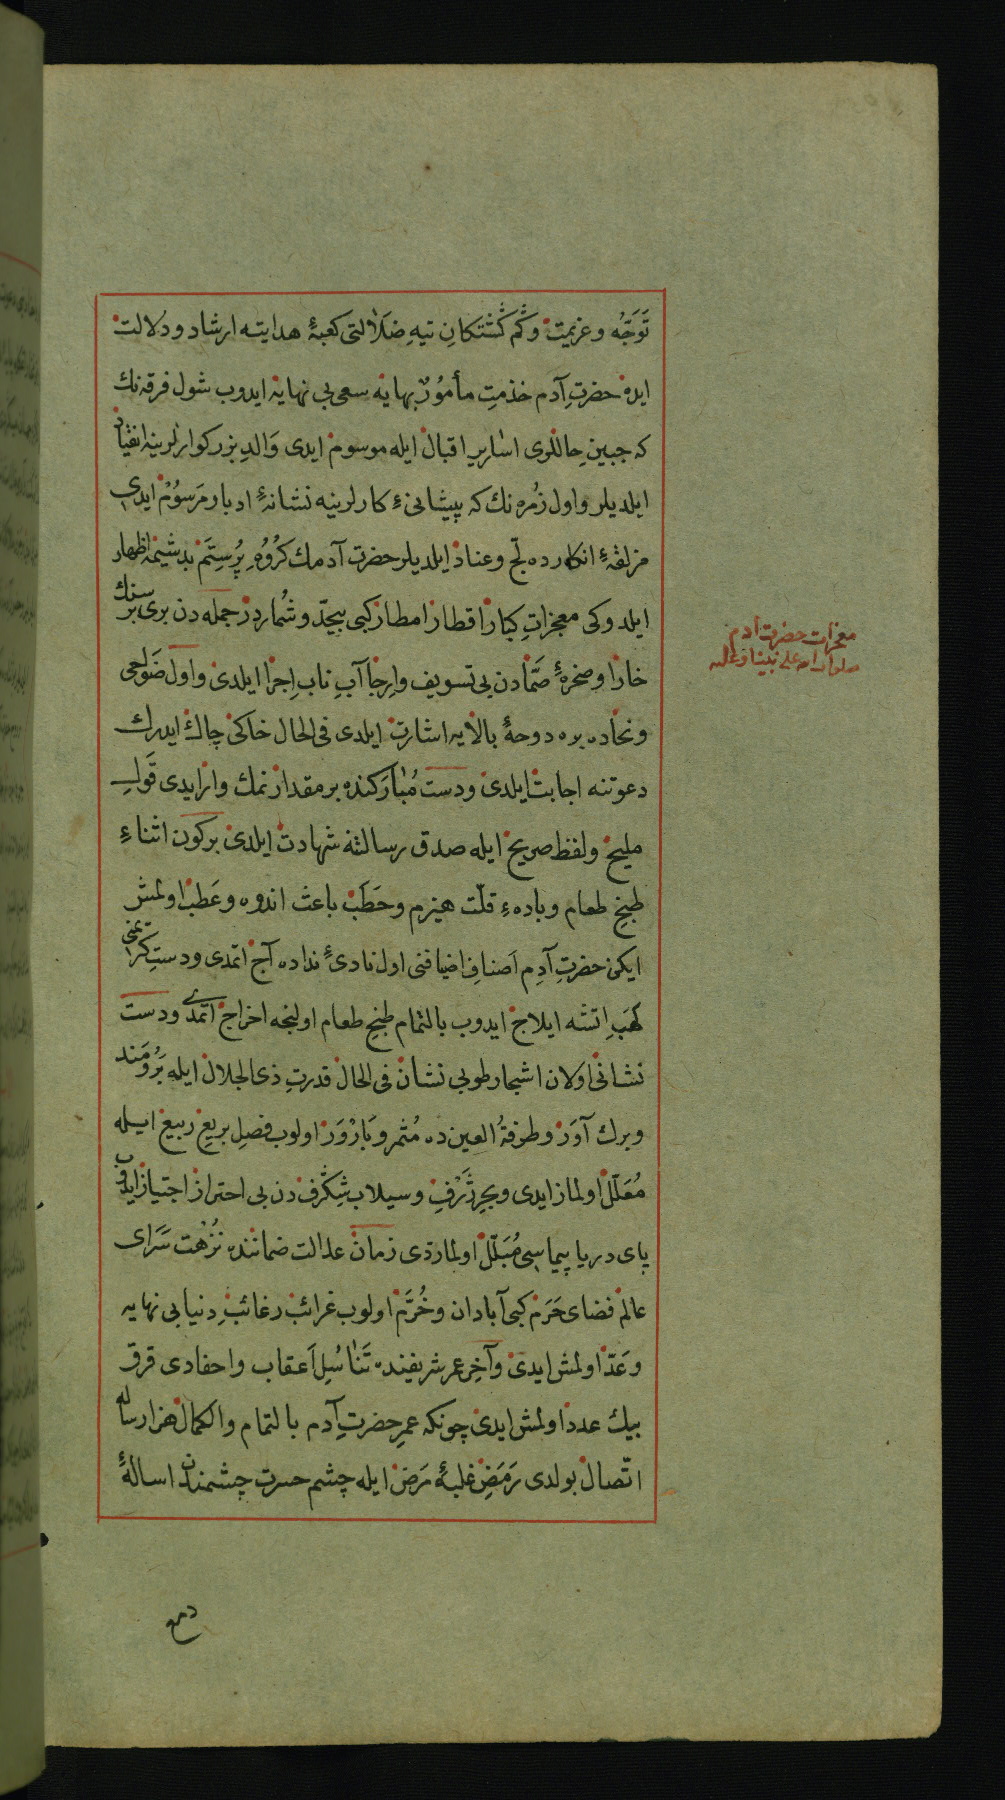 تَوَجُّه وعزيمت وگم گشتكانِ تيهِ ضلالتی كعبهٔ هدايته ارشاد ودلالت
ايده حضرتِ آدم خذمتِ مأمورٌ بهايه سعی بی نهايه ايدوب شول فرقه نك
كه جبينِ حاللری اساريرِ اقبال ايله موسوم ايدی وَالدِ بزركوارلرينه انقياد
ايلديلر واول زُمره نك كه پيشانیٔ كارلرينه نشانهٔ ادبار مَرسوُم ايدی
مزلقهٔ انكارده لج وعناد ايلديلر حضرت آدمك كُروُهِ پُرستَم بدشيمه اظهار
ايلدوكی معجزاتِ كبار اقطار امطار كبی بيحدّ وشُماردر جمله دن بری بر سنك
خارا وصخرهٔ صَمّادن بی تسويف وارجا آبِ نابِ اجرا ايلدی واول ضَواحی
ونخاده بره دوحهٔ بالايه اشارت ايلدی فی الحال خاكی چاك ايدرك
دعوتنه اجابت ايلدی ودست مُبارَكنده بر مقدار نمك وار ايدی قَولِ
مليح ولفظ صريح ايله صدق رسالتنه شهادت ايلدی بركون اثناءِ
طبخِ طعام وباده‌ءِ قلّت هيزم وحَطَب باعث اندوه وعَطب اولمش
ايكن حضرتِ آدم اَصنافِ اضيافنی اول نادیٔ نداده آج اتمدی ودستِ كرامنی
لهَبِ اتشه ايلاج ايدوب بالتمام طبخ طعام اولنجه اخراج اتمدی ودست
نشانی اولان اشجار طوبی نشان فی الحال قدرتِ ذی الجلال ايله بَرُومَند
وبرك آوَر وطرفةُ العين ده مُثمر وبَارْوَر اولوب فصلِ بريع ربيع ايله
مُعَلّل اولماز ايدی وبحرِ ژَرفِ وسيلاب شِگرف دن بی احتراز اجتياز ايدوب
پای دريا پيماسی مُبَلّل اولمازدی زمان عدالت ضماننده نُزْهت سَرای
عالم فضای حَرَم كبی آبادان وخُرّم اولوب غرائب رغائبِ دنيا بی نهايه
وعَدّ اولمش ايدی وآخرِ عمر شريفنده تَناسُلِ اَعقاب واحفادی قرق
بيك عدد اولمش ايدی چونكه عمرِ حضرتِ آدم بالتمام والكمال هزار ساله
اتّصال بولدی رَمَضِ غلبهٔ مَرَض ايله چشم حسرت چشمندن اسالهٔ
معجزات حضرت آدم
صلوات الله علی نبينا وعليه
دمع